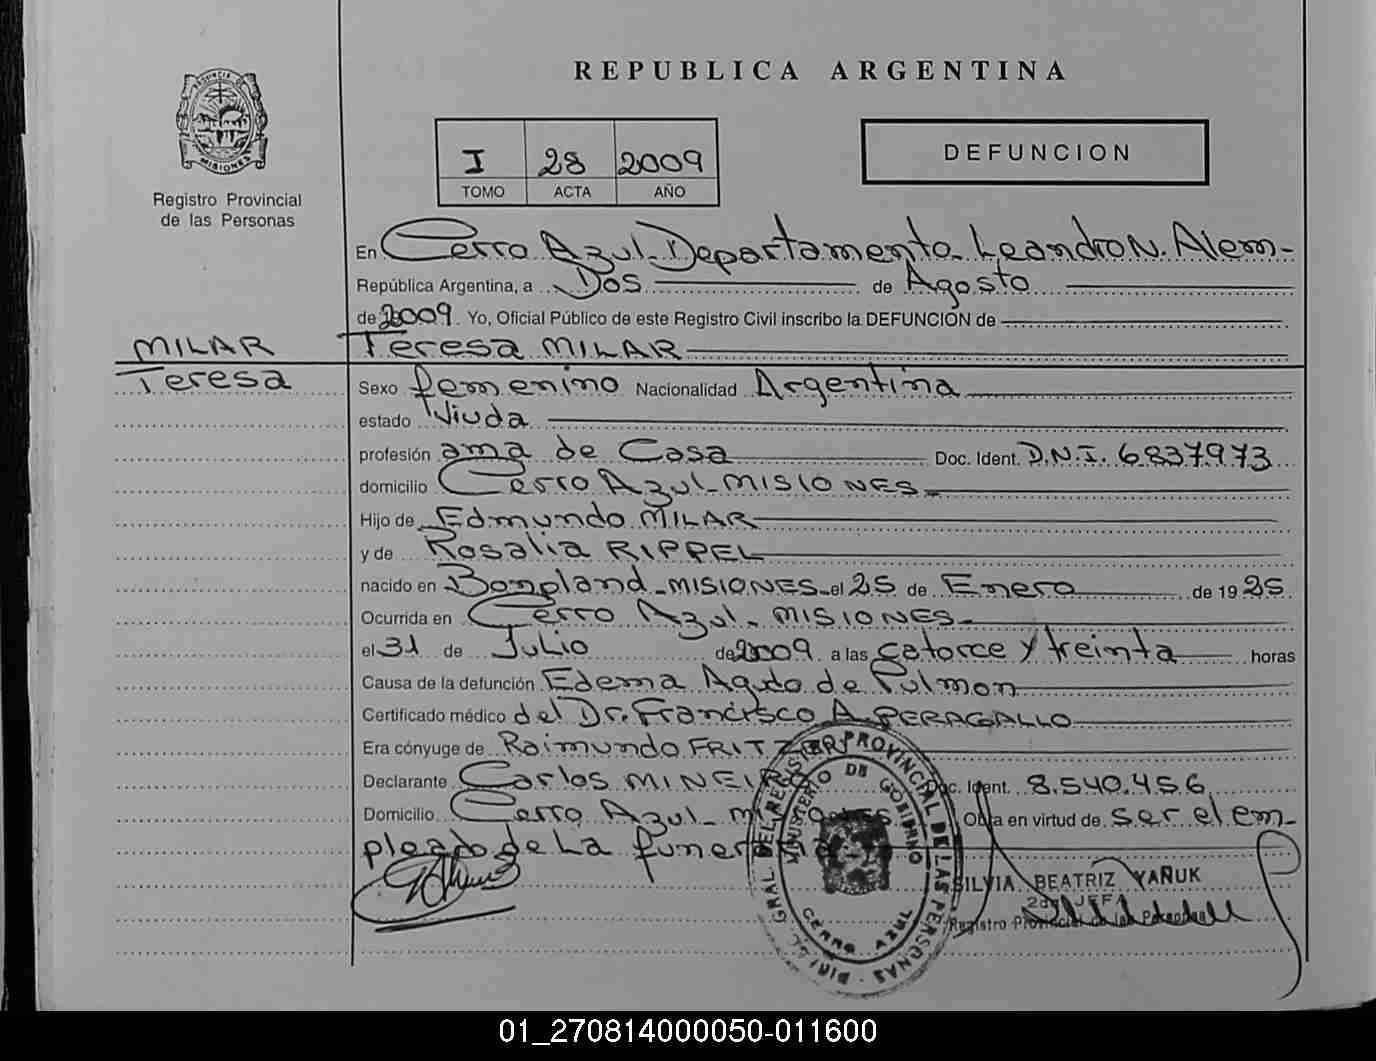 REPUBLICA ARGENTINA
I 28 2009
TOMO ACTA AÑO
DEFUNCION
MISIONES
Registro Provincial
de las Personas
En Cerro Azul - Departamento - Leandro N. Alem -
República Argentina, a Dos de Agosto
de 2009. Yo, Oficial Público de este Registro Civil inscribo la DEFUNCION de
MILAR Teresa MILAR
Teresa
Sexo femenino Nacionalidad Argentina
estado Viuda
profesión ama de Casa Doc. Ident. D.N.I. 6837973
domicilio Cerro Azul - MISIONES -
Hijo de Edmundo MILAR
y de Rosalia RIPPEL
nacido en Bonpland - MISIONES - el 25 de Enero de 1925
Ocurrida en Cerro Azul - MISIONES -
el 31 de Julio de 2009 a las catorce y treinta horas
Causa de la defunción Edema Agudo de Pulmon
Certificado médico del Dr. Francisco A. PERAGALLO
Era cónyuge de Raimundo
Declarante Carlos MINEIRO Doc. Ident. 8.540.456
Domicilio Cerro Azul - Misiones Obra en virtud de ser el em-
pleado de La funeraria
SILVIA BEATRIZ YAÑUK
2da JEFA
Registro Provincial de las Personas
DIR. GRAL DEL REGISTRO PROVINCIAL DE LAS PERSONAS
MINISTERIO DE GOBIERNO
CERRO AZUL
01_270814000050-011600